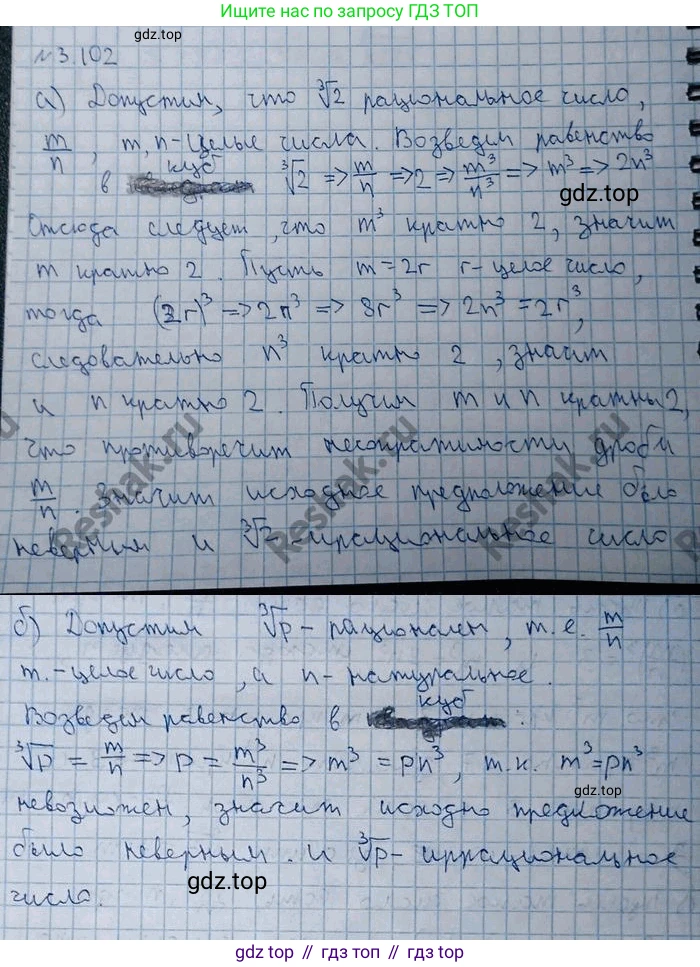 Ищите нас по запросу ГДЗ ТОП
gdz.top
№3.102
а) Допустим, что ∛2 рациональное число,
m/n, m, n - целые числа. Возведем равенство
в куб ∛2 => m/n => 2 => m³/n³ => m³ => 2n³
gdz.top
Отсюда следует, что m³ кратно 2, значит
m кратно 2. Пусть m = 2r r - целое число,
тогда (2r)³ => 2n³ => 8r³ => 2n³ = 2r³,
следовательно n³ кратно 2, значит
и n кратно 2. Получим m и n кратны 2,
что противоречит несократимости дроби
m/n. Значит исходное предположение было
неверным и ∛2 - иррациональное число
Reshak.ru
Reshak.ru
Reshak.ru
б) Допустим ∛p - рационален, т.е. m/n
m. - целое число, а n - натуральное.
Возведем равенство в куб:
∛p = m/n => p = m³/n³ => m³ = pn³, т.к. m³ = pn³
невозможен, значит исходно предложение
было неверным. и ∛p - иррациональное
число.
gdz.top
gdz top // гдз топ // gdz.top